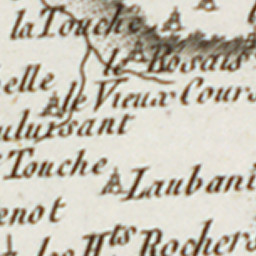 la Touche
le Rosais
elle
le Vieux Cours
ulursant
Touche
Laubani
enot
les Hts Rochers